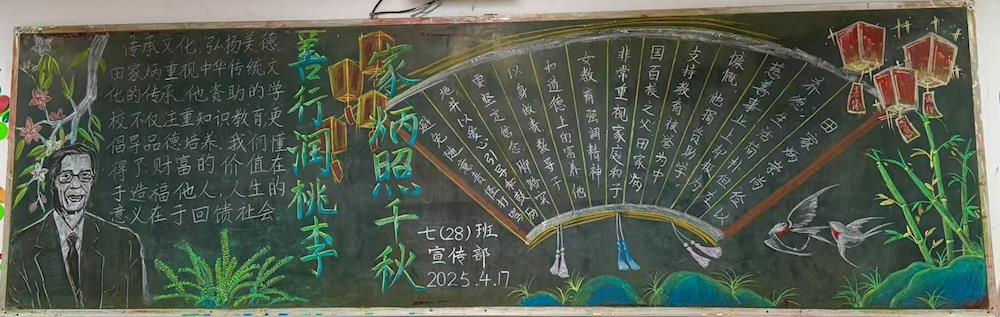 传承文化,弘扬美德.
田家炳重视中华传统文
化的传承.他资助的学
校不仅注重知识教育,更
倡导品德培养.我们懂
得了:财富的价值在
于造福他人,人生的
意义在于回馈社会.
善行润桃李
家炳照千秋
七(28)班
宣传部
2025.4.17
养德:田家炳崇尚
慈善事业上却极
慷慨,他捐资助学,
支持教育被誉为中
国百校之父田家炳
非常重视家庭和子
女教育强调精神
和道德上的富养他
以身作责教导子
要坚定信念脚踏实
地并以爱心引导和教
避免随意责怪打骂